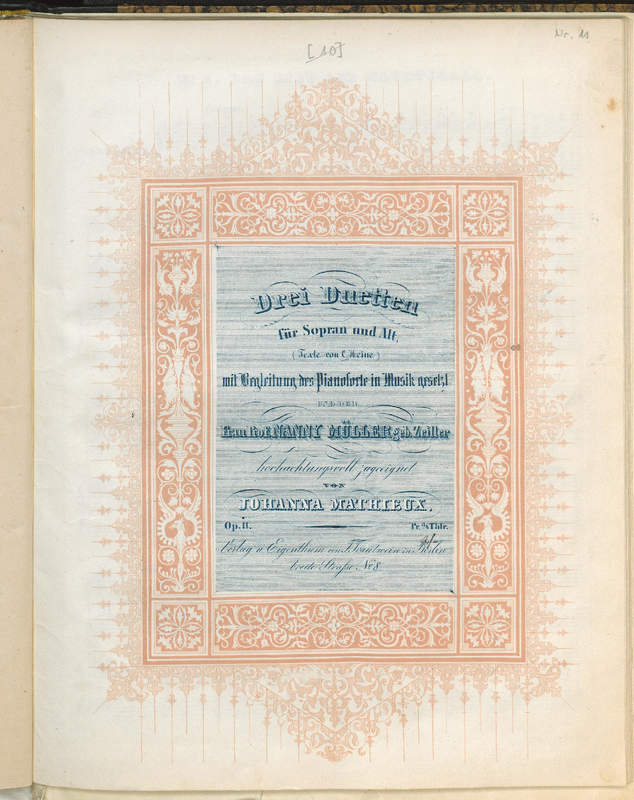 [10]
Nr. 11
Drei Duetten
für Sopran und Alt,
(Texte von C. Heine)
mit Begleitung des Pianoforte in Musik gesetzt
UND DER
Frau Prof. NANNY MÜLLER geb. Zeiller
hochachtungsvoll zugeeignet
VON
JOHANNA MATHIEUX.
Op. 11. Pr. Thlr.
Verlag u. Eigenthum von T. Trautwein in Berlin
breite Straße No 8.